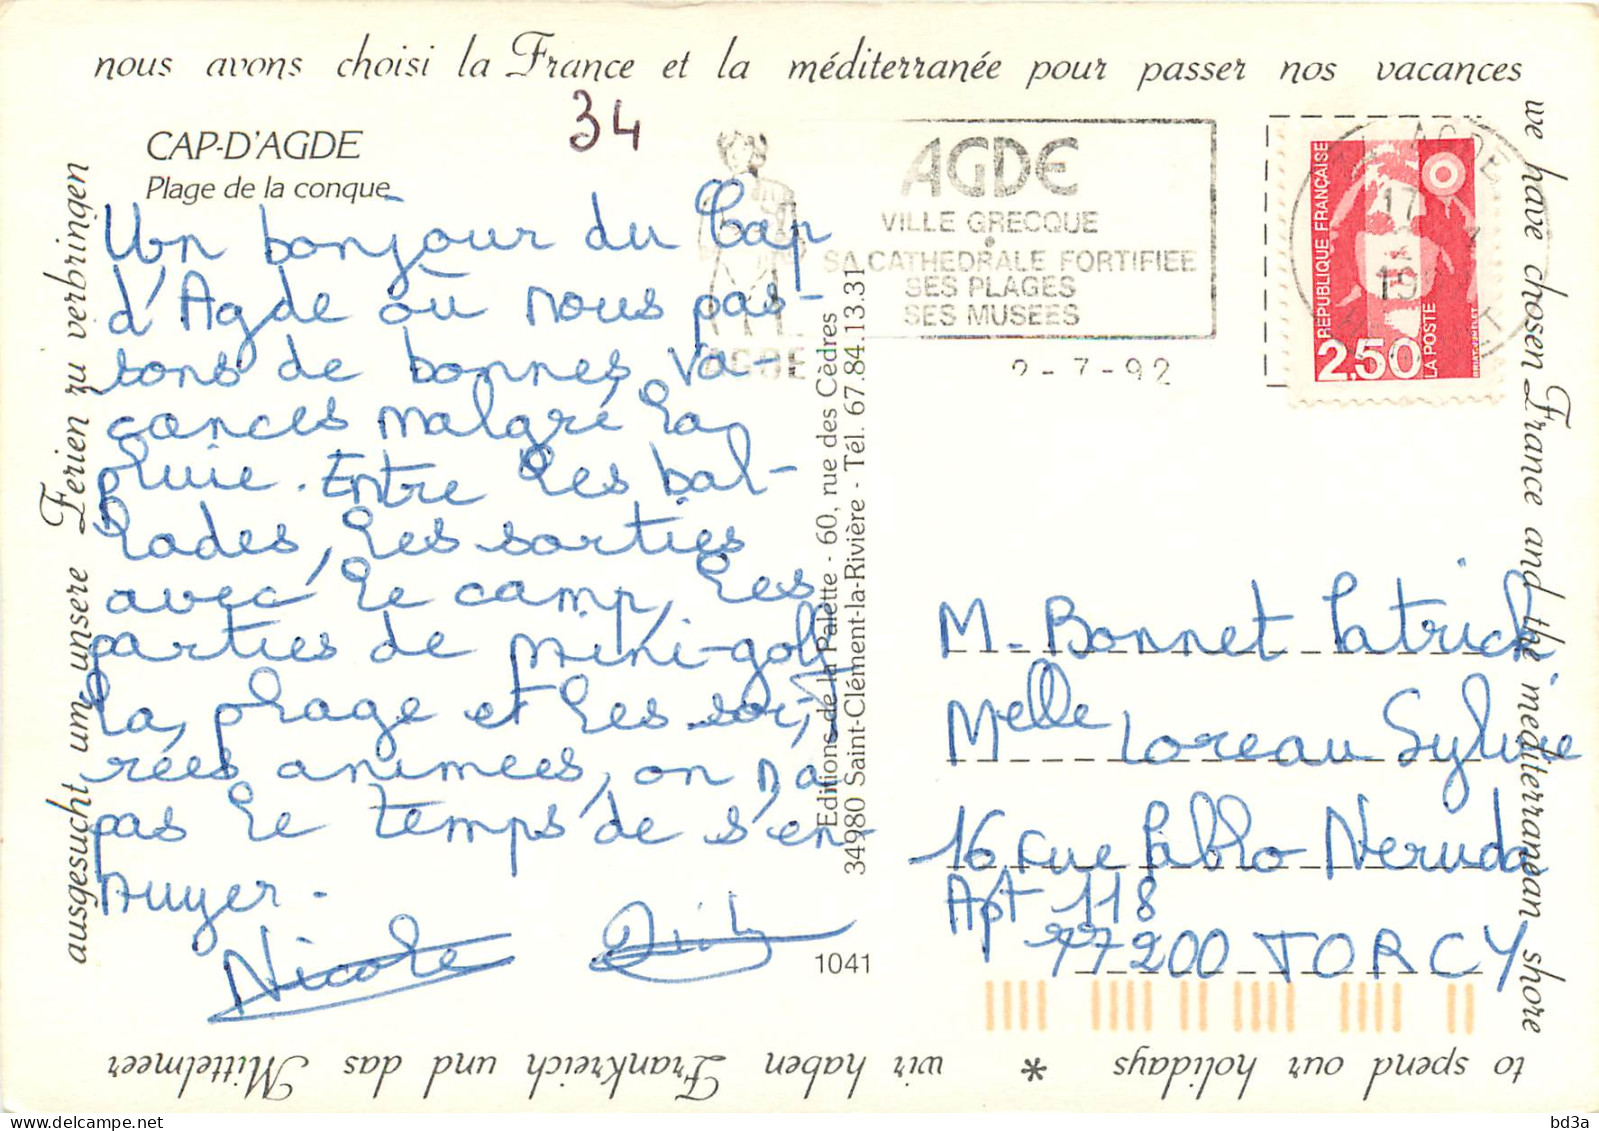 nous avons choisi la France et la méditerranée pour passer nos vacances
we have chosen France and the mediterranean shore
to spend our holidays * wir haben Frankreich und das Mittelmeer
ausgesucht um unsere Ferien zu verbringen
34
CAP-D'AGDE
Plage de la conque
Un bonjour du Cap
d'Agde où nous pas-
sons de bonnes va-
cances malgré la
pluie. Entre les bal-
lades, les sorties
avec le camp, les
parties de mini-golf
la, plage et les soi,
rées animées, on n'a
pas le temps de s'en-
nuyer.
Nicole
Editions de la Palette - 60, rue des Cèdres
34980 Saint-Clément-la-Rivière - Tél. 67.84.13.31
1041
AGDE
AGDE
VILLE GRECQUE
SA CATHEDRALE FORTIFIEE
SES PLAGES
SES MUSEES
2-7-92
AGDE
17
19
REPUBLIQUE FRANÇAISE
2,50
LA POSTE
M. Bonnet Patrick
Melle Loreau Sylvie
16 rue Pablo Neruda
Apt 118
77200 TORCY
delcampe.net
bd3a